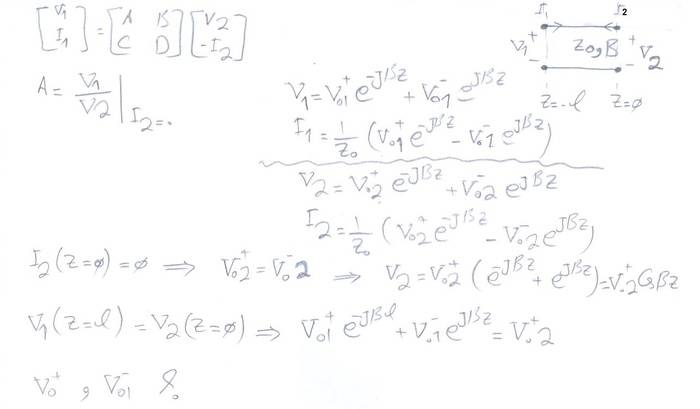 [V1 I1] = [A B C D] [V2 -I2]
I1 I2
V1 + - Z0, β + - V2
z=-l z=0
A = V1/V2 | I2=0
V1 = V01^+ e^-Jβz + V01^- e^Jβz
I1 = 1/Z0 (V01^+ e^-Jβz - V01^- e^Jβz)
V2 = V02^+ e^-Jβz + V02^- e^Jβz
I2 = 1/Z0 (V02^+ e^-Jβz - V02^- e^Jβz)
I2(z=0)=0 ⇒ V02^+ = V02^- ⇒ V2 = V02^+ (e^-Jβz + e^Jβz) = V02^+ Cosβz
V1(z=-l) = V2(z=0) ⇒ V01^+ e^-Jβl + V01^- e^Jβz = V02^+
V0^+ , V01^- ?